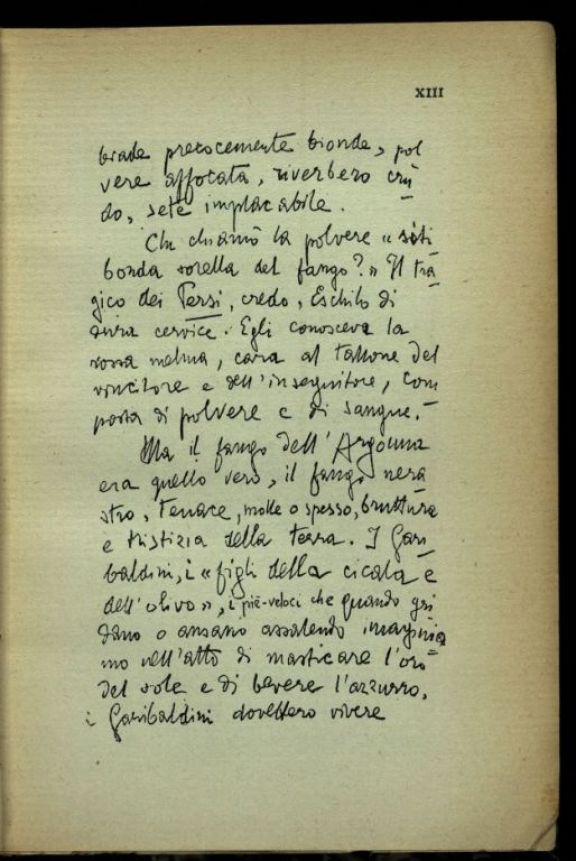 XIII
biade precocemente bionde, pol
vere affocata, riverbero cru
do, sete implacabile.
Chi chiamò la polvere « siti
bonda sorella del fango? » Il tra
gico dei Persi, credo, Eschilo di
dura cervice. Egli conosceva la
rossa melma, cara al tallone del
vincitore e dell'inseguitore, com
posta di polvere e di sangue.
Ma il fango dell'Argonna
era quello vero, il fango nera
stro, tenace, molle o spesso, bruttura
e tristizia della terra. I Gari
baldini, i « figli della cicala e
dell'olivo », i piè-veloci che quando gri
dano o ansano assalendo imaginia
mo nell'atto di masticare l'oro
del sole e di bevere l'azzurro,
i Garibaldini dovettero vivere